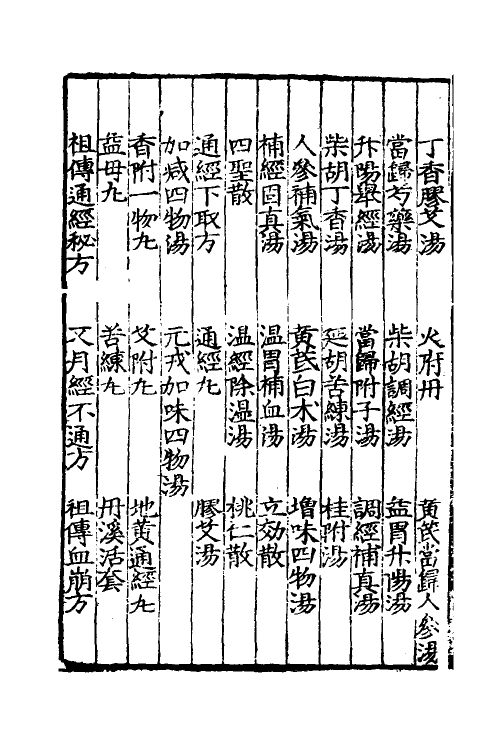 丁香膠艾湯　火府丹　黃芪當歸人參湯
當歸芍藥湯　柴胡調經湯　益胃升陽湯
升陽舉經湯　當歸附子湯　調經補真湯
柴胡丁香湯　延胡苦練湯　桂附湯
人參補氣湯　黃芪白朮湯　增味四物湯
補經固真湯　温胃補血湯　立効散
四聖散　温經除湿湯　桃仁散
通經下取方　通經丸　膠艾湯
加减四物湯　元戎加味四物湯
香附一物丸　艾附丸　地黃通經丸
益母丸　苦練丸　丹溪活套
祖傳通經秘方　又月經不通方　祖傳血崩方